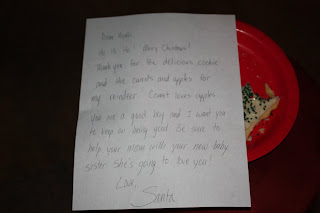 Dear
Ho Ho Ho! Merry Christmas!
Thank you for the delicious cookie
and the carrots and apples for
my reindeer. Comet loves apples.
You are a good boy and I want you
to keep on being good. Be sure to
help your mom with your new baby
sister. She's going to love you!
Love,
Santa